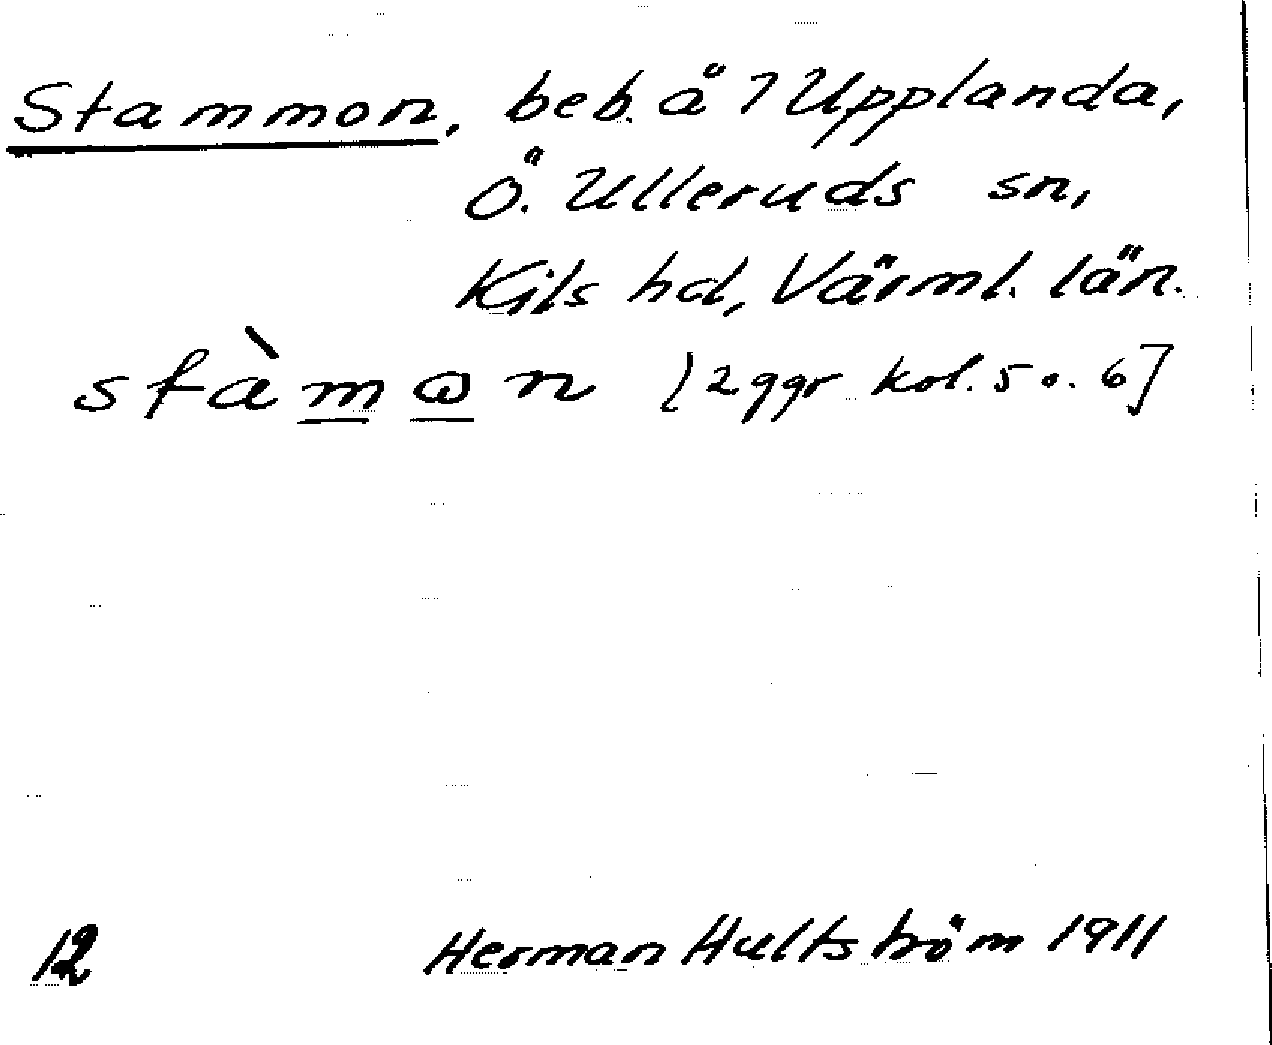 Stammon, beb. å 7 Upplanda,
Ö. Ulleruds sn,
Kils hd, Värml. län.
stàmɷn [2 ggr kol. 5 o. 6]
12 Herman Hultström 1911